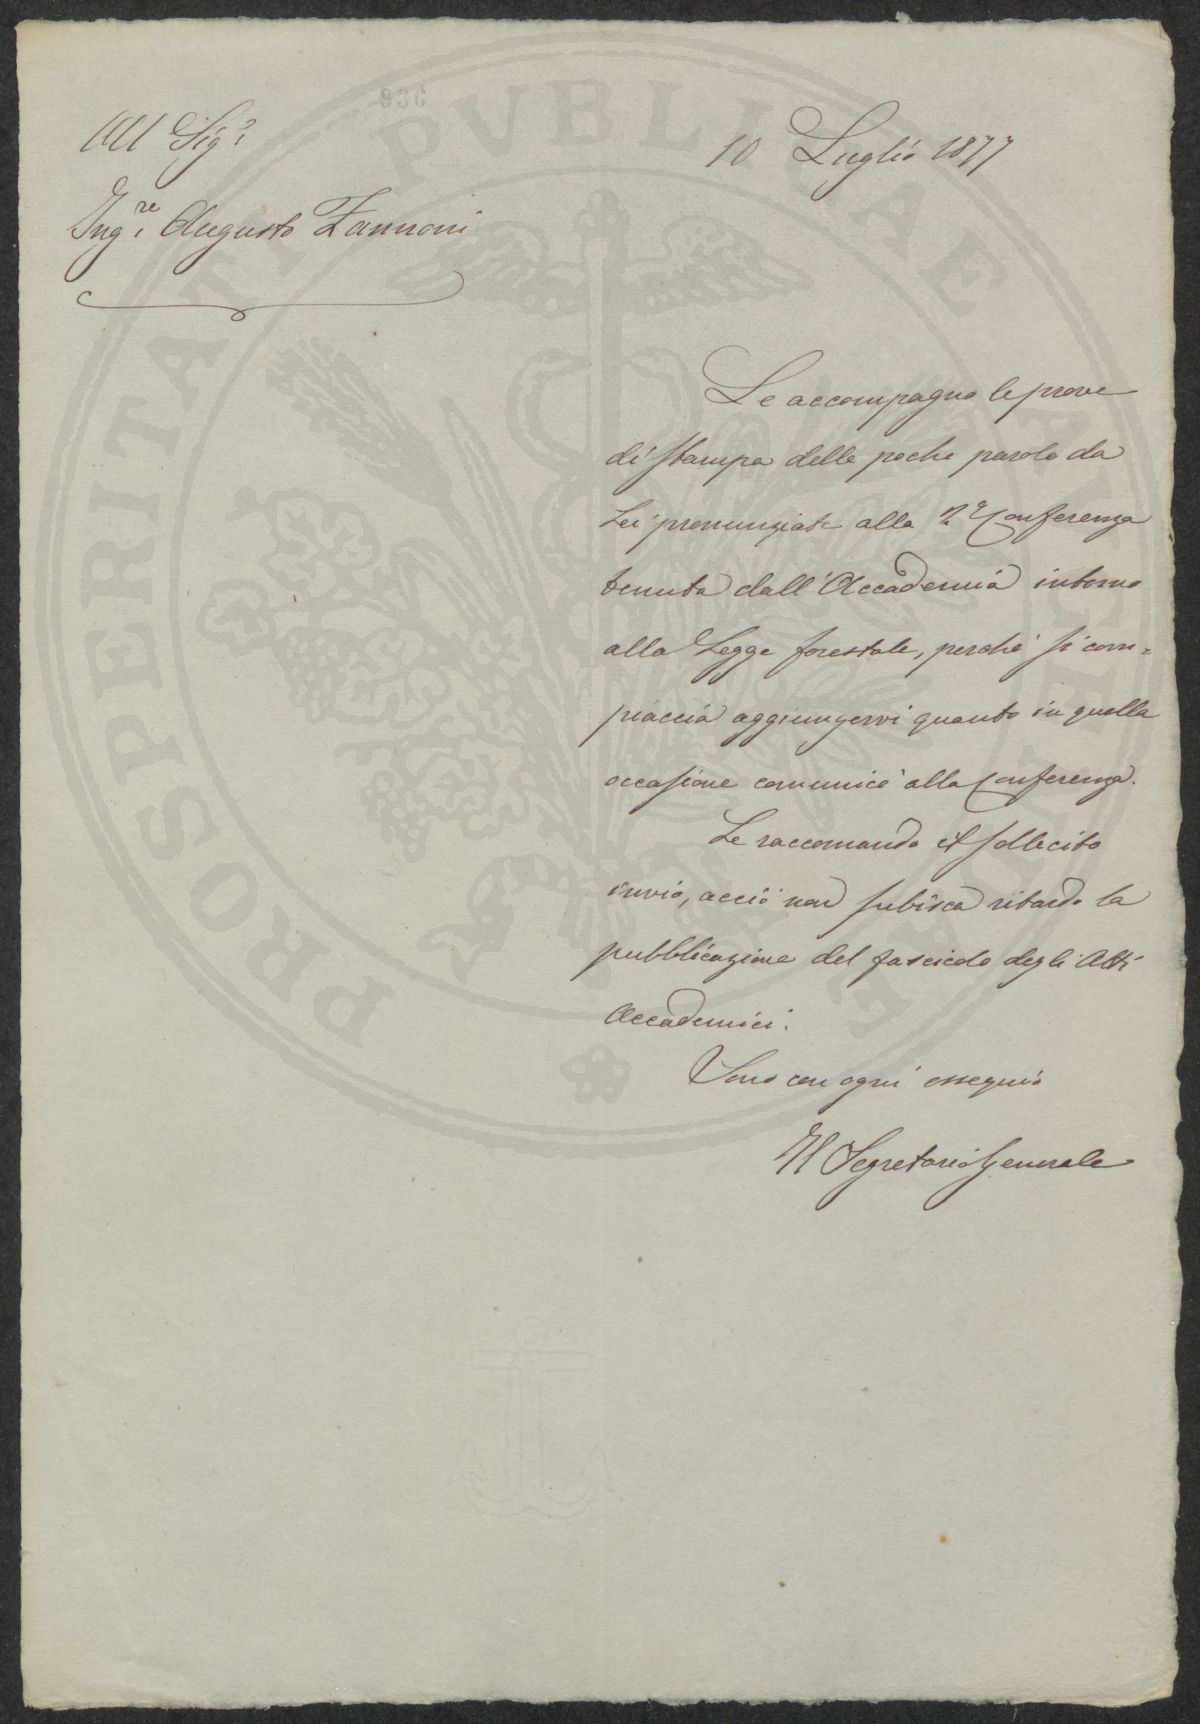 936
All Sig.r
Ing.re Augusto Zannoni
10 Luglio 1877
Le accompagno le prove
di stampa delle poche parole da
Lei pronunziate alla 2.a Conferenza
tenuta dall'Accademia intorno
alla Legge forestale, perchè si com=
piaccia aggiungervi quanto in quella
occasione comunicò alla Conferenza.
Le raccomando il sollecito
invio, acciò non subisca ritardo la
pubblicazione del fascicolo degli Atti
Accademici.
Sono con ogni ossequio
Il Segretario Generale
PROSPERITATI PVBLICAE